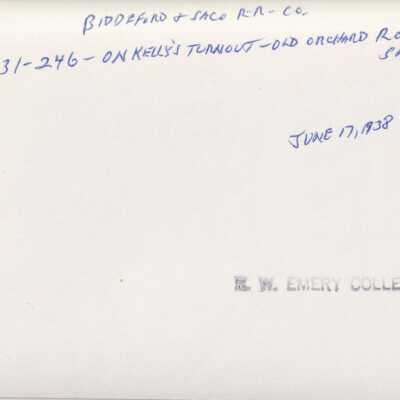 BIDDEFORD & SACO R.R. CO.
31-246-ON KELLY'S TURNOUT-OLD ORCHARD RO
SA
JUNE 17, 1938
E. W. EMERY COLLE